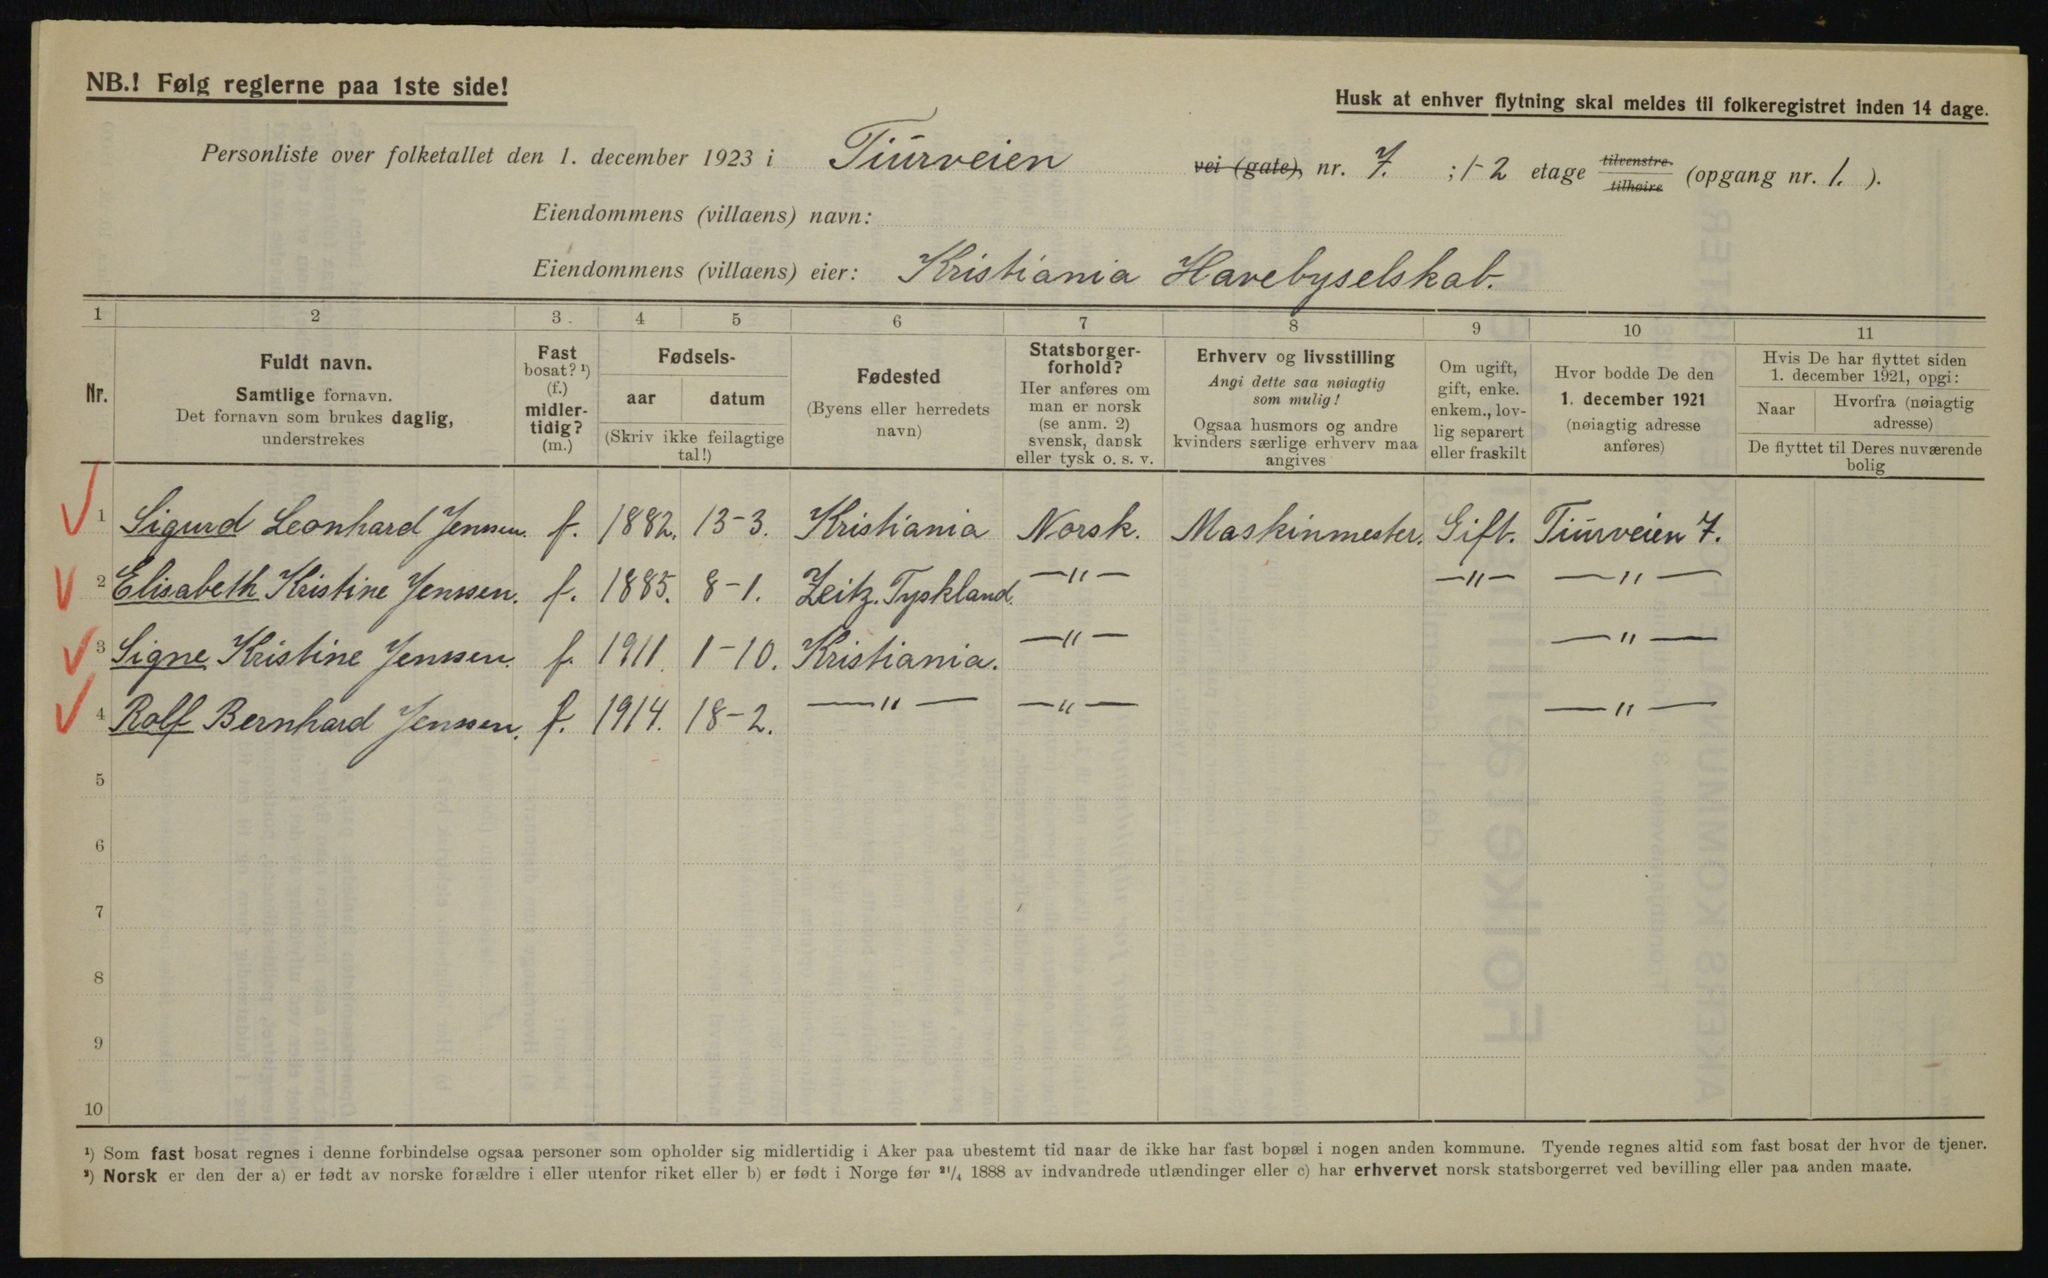 NB.! Følg reglerne paa 1ste side!
Husk at enhver flytning skal meldes til folkeregistret inden 14 dage.
Personliste over folketallet den 1. december 1923 i Tiurveien vei (gate), nr. 7. ; 1-2 etage tilvenstre tilhøire (opgang nr. 1. ).
Eiendommens (villaens) navn:
Eiendommens (villaens) eier: Kristiania Havebyselskab.
1 2 3 4 5 6 7 8 9 10 11
Nr.
Fuldt navn.
Samtlige fornavn.
Det fornavn som brukes daglig,
understrekes
Fast
bosat? ¹)
(f.)
midler-
tidig?
(m.)
Fødsels-
aar datum
(Skriv ikke feilagtige
tal!)
Fødested
(Byens eller herredets
navn)
Statsborger-
forhold?
Her anføres om
man er norsk
(se anm. 2)
svensk, dansk
eller tysk o. s. v.
Erhverv og livsstilling
Angi dette saa nøiagtig
som mulig!
Ogsaa husmors og andre
kvinders særlige erhverv maa
angives
Om ugift,
gift, enke.
enkem., lov-
lig separert
eller fraskilt
Hvor bodde De den
1. december 1921
(nøiagtig adresse
anføres)
Hvis De har flyttet siden
1. december 1921, opgi:
Naar
Hvorfra (nøiagtig
adresse)
De flyttet til Deres nuværende
bolig
1 Sigurd Leonhard Jenssen. f. 1882. 13-3. Kristiania Norsk. Maskinmester. Gift. Tiurveien 7.
2 Elisabeth Kristine Jenssen. f. 1885. 8-1. Zeitz. Tyskland. —"— —"— —"—
3 Signe Kristine Jenssen. f. 1911. 1-10. Kristiania. —"— —"—
4 Rolf Bernhard Jenssen. f. 1914. 18-2. —"— —"— —"—
5
6
7
8
9
10
¹) Som fast bosat regnes i denne forbindelse ogsaa personer som opholder sig midlertidig i Aker paa ubestemt tid naar de ikke har fast bopæl i nogen anden kommune. Tyende regnes altid som fast bosat der hvor de tjener.
²) Norsk er den der a) er født av norske forældre i eller utenfor riket eller b) er født i Norge før ²¹/₄ 1888 av indvandrede utlændinger eller c) har erhvervet norsk statsborgerret ved bevilling eller paa anden maate.